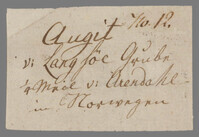 Augit No. 12.
v: Langsöe Grube
1/4 Meile v: Arendahl
in Norwegen